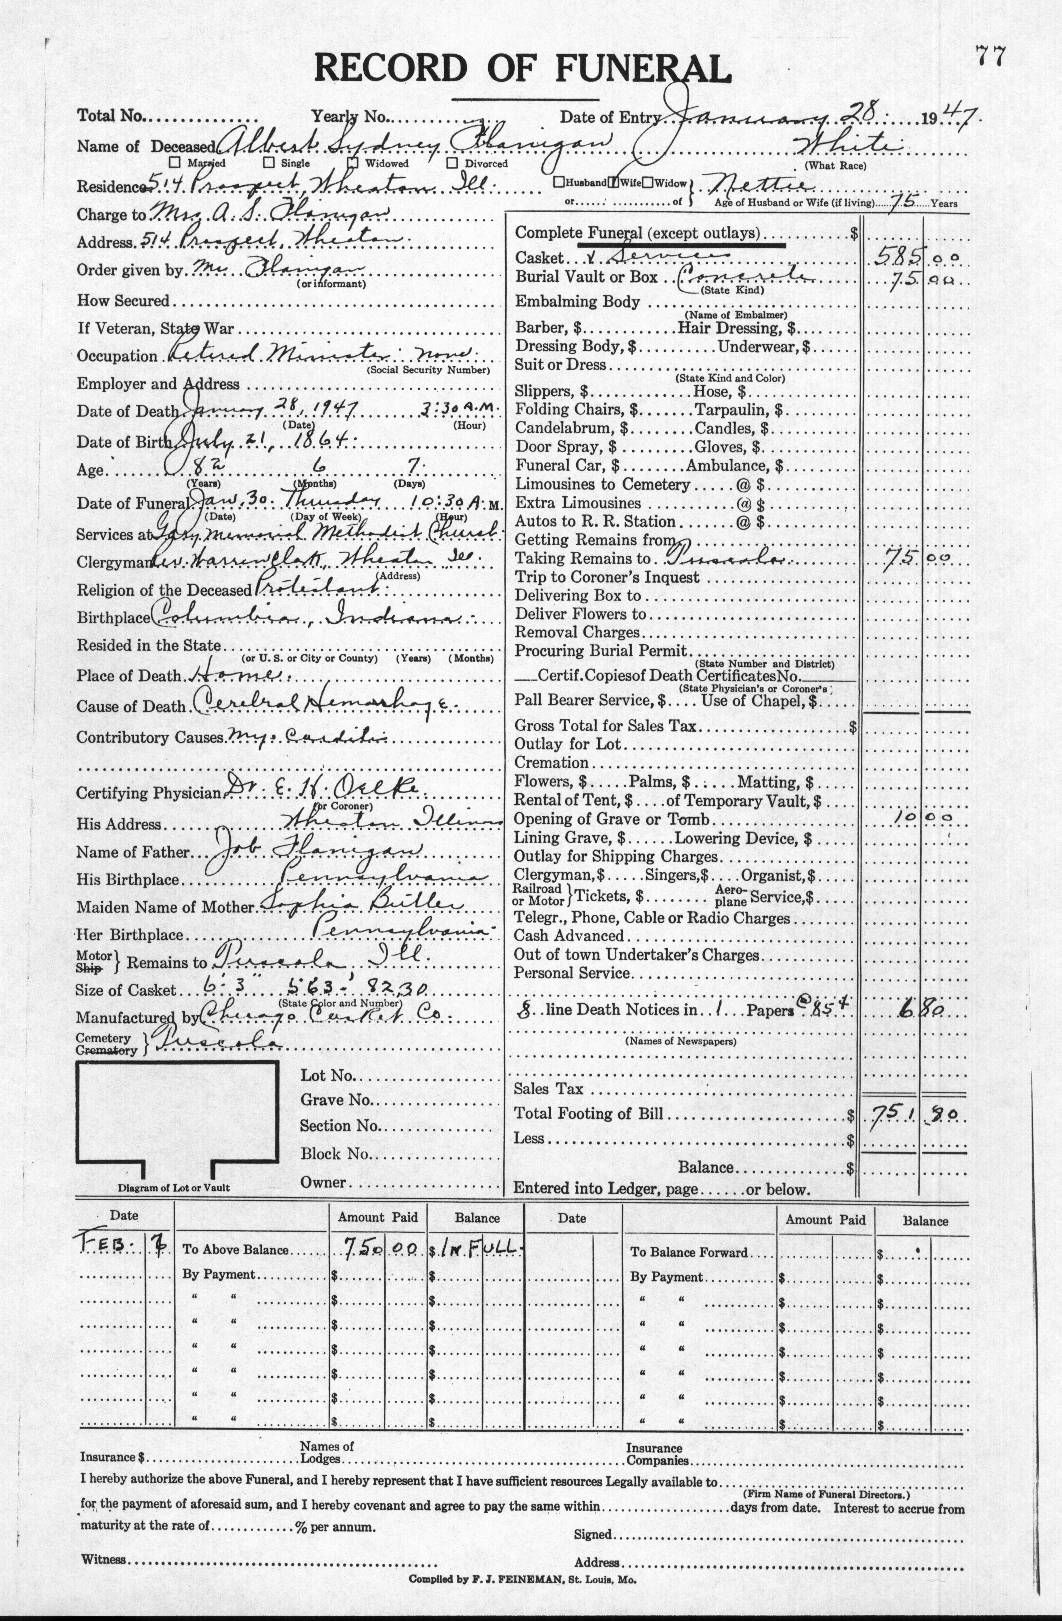 77
RECORD OF FUNERAL
Total No. Yearly No. Date of Entry January 28 1947.
Name of Deceased Albert Sydney Flanigan White
Married Single Widowed Divorced (What Race)
Residence 514 Prospect, Wheaton Ill. Husband Wife Widow } Nettie
or of Age of Husband or Wife (if living) 75 Years
Charge to Mrs. A. S. Flanigan
Address. 514 Prospect, Wheaton.
Order given by Mrs. Flanigan
(or informant)
How Secured
If Veteran, State War
Occupation Retired Minister none
(Social Security Number)
Employer and Address
Date of Death January 28, 1947 3:30 A.M.
(Date) (Hour)
Date of Birth July 21, 1864.
Age 82 6 7.
(Years) (Months) (Days)
Date of Funeral Jan. 30. Thursday 10:30 A.M.
(Date) (Day of Week) (Hour)
Services at Gary Memorial Methodist Church
Clergyman Rev. Warren Clark, Wheaton Ill.
(Address)
Religion of the Deceased Protestant
Birthplace Columbia, Indiana
Resided in the State
(or U. S. or City or County) (Years) (Months)
Place of Death Home.
Cause of Death Cerebral Hemorrhage.
Contributory Causes Myo Carditis
Certifying Physician Dr. E. H. Oelke.
(or Coroner)
His Address Wheaton Illinois
Name of Father Job Flanigan
His Birthplace Pennsylvania
Maiden Name of Mother Sophia Butler
Her Birthplace Pennsylvania
Motor Ship } Remains to Tuscola, Ill.
Size of Casket 6-3 563-8230
(State Color and Number)
Manufactured by Chicago Casket Co.
Cemetery Crematory } Tuscola
Lot No.
Grave No.
Section No.
Block No.
Owner
Diagram of Lot or Vault
Complete Funeral (except outlays) $
Casket & Services 585 00
Burial Vault or Box Concrete 75 00
(State Kind)
Embalming Body
(Name of Embalmer)
Barber, $ Hair Dressing, $
Dressing Body, $ Underwear, $
Suit or Dress
(State Kind and Color)
Slippers, $ Hose, $
Folding Chairs, $ Tarpaulin, $
Candelabrum, $ Candles, $
Door Spray, $ Gloves, $
Funeral Car, $ Ambulance, $
Limousines to Cemetery @ $
Extra Limousines @ $
Autos to R. R. Station @ $
Getting Remains from
Taking Remains to Tuscola 75 00
Trip to Coroner's Inquest
Delivering Box to
Deliver Flowers to
Removal Charges
Procuring Burial Permit
(State Number and District)
Certif. Copies of Death Certificates No.
(State Physician's or Coroner's)
Pall Bearer Service, $ Use of Chapel, $
Gross Total for Sales Tax $
Outlay for Lot
Cremation
Flowers, $ Palms, $ Matting, $
Rental of Tent, $ of Temporary Vault, $
Opening of Grave or Tomb 10 00
Lining Grave, $ Lowering Device, $
Outlay for Shipping Charges
Clergyman, $ Singers, $ Organist, $
Railroad or Motor } Tickets, $ Aeroplane Service, $
Telegr., Phone, Cable or Radio Charges
Cash Advanced
Out of town Undertaker's Charges
Personal Service
8 line Death Notices in 1 Papers @ 85¢ 6 80
(Names of Newspapers)
Sales Tax
Total Footing of Bill $ 751 80
Less $
Balance $
Entered into Ledger, page or below.
Date Amount Paid Balance Date Amount Paid Balance
FEB. 7 To Above Balance 750 00 $ IN FULL. To Balance Forward $
By Payment $ $ By Payment $ $
" " $ $ " " $ $
" " $ $ " " $ $
" " $ $ " " $ $
" " $ $ " " $ $
" " $ $ " " $ $
" " $ $ " " $ $
Insurance $ Names of Lodges Insurance Companies
I hereby authorize the above Funeral, and I hereby represent that I have sufficient resources Legally available to
(Firm Name of Funeral Directors.)
for the payment of aforesaid sum, and I hereby covenant and agree to pay the same within days from date. Interest to accrue from
maturity at the rate of % per annum.
Signed
Witness Address
Compiled by F. J. FEINEMAN, St. Louis, Mo.